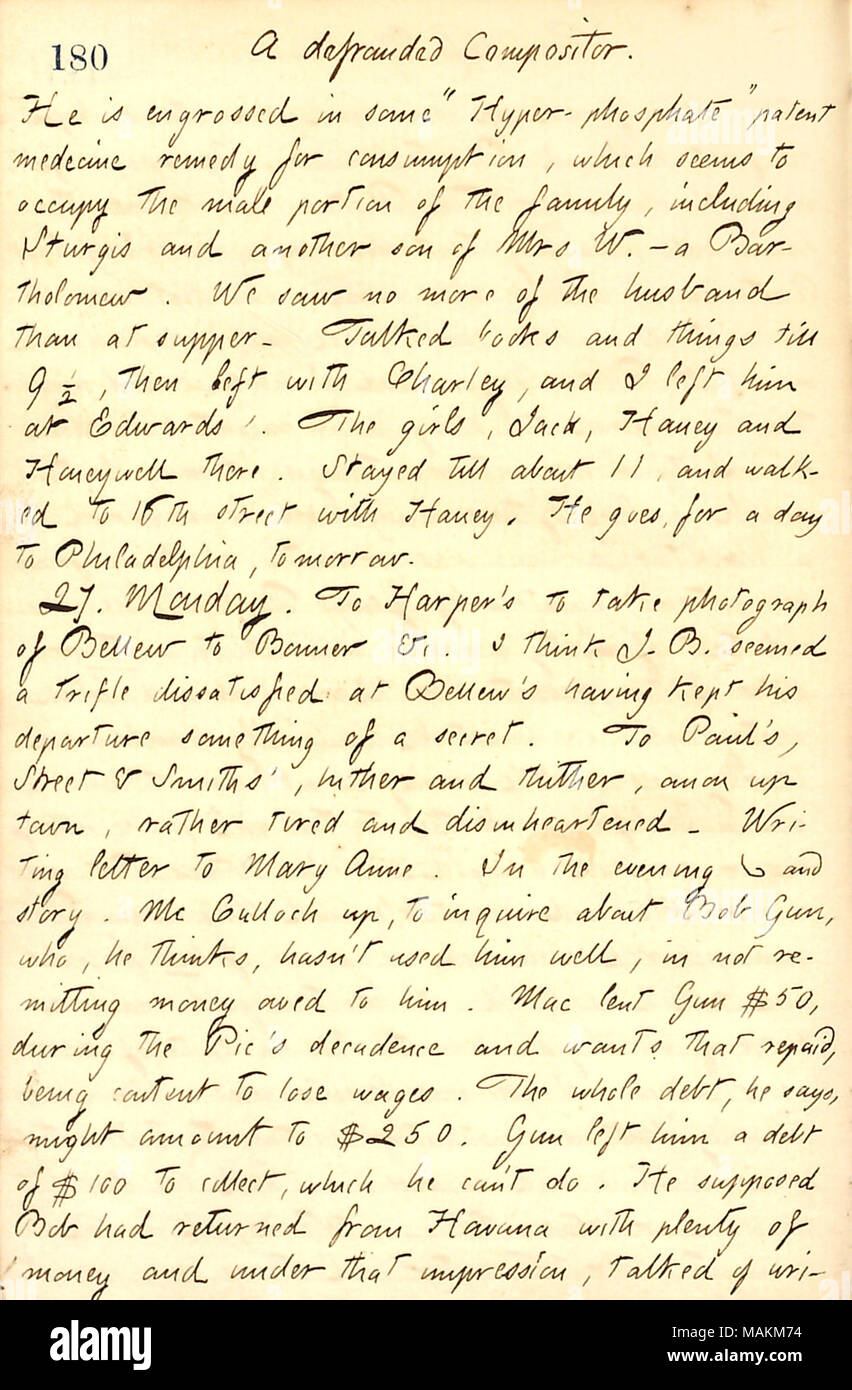 180
A defrauded Compositor.
He is engrossed in some "Hyper-phosphate" patent
medecine remedy for consumption, which seems to
occupy the male portion of the family, including
Sturgis and another son of Mrs W. — a Bar-
tholomew. We saw no more of the husband
than at supper — Talked books and things till
9 ½, then left with Charley, and I left him
at Edwards'. The girls, Jack, Haney and
Honeywell there. Stayed till about 11, and walk-
ed to 16th street with Haney. He goes, for a day
to Philadelphia, tomorrow.
27. Monday. To Harper's to take photograph
of Bellew to Bonner &c. I think J. B. seemed
a trifle dissatisfied at Bellew's having kept his
departure something of a secret. To Paul's,
Street & Smiths', hither and thither, anon up
town, rather tired and disinheartened — Wri-
ting letter to Mary Anne. In the evening and
story. Mc Culloch up, to inquire about Bob Gun,
who, he thinks, hasn't used him well, in not re-
mitting money owed to him. Mac lent Gun $50,
during the Pic's decadence and wants that repaid,
being content to lose wages. The whole debt, he says,
might amount to $250. Gun left him a debt
of $100 to collect, which he can't do. He supposed
Bob had returned from Havana with plenty of
money and under that impression, talked of wri-
alamy
Image ID: MAKM74
www.alamy.com